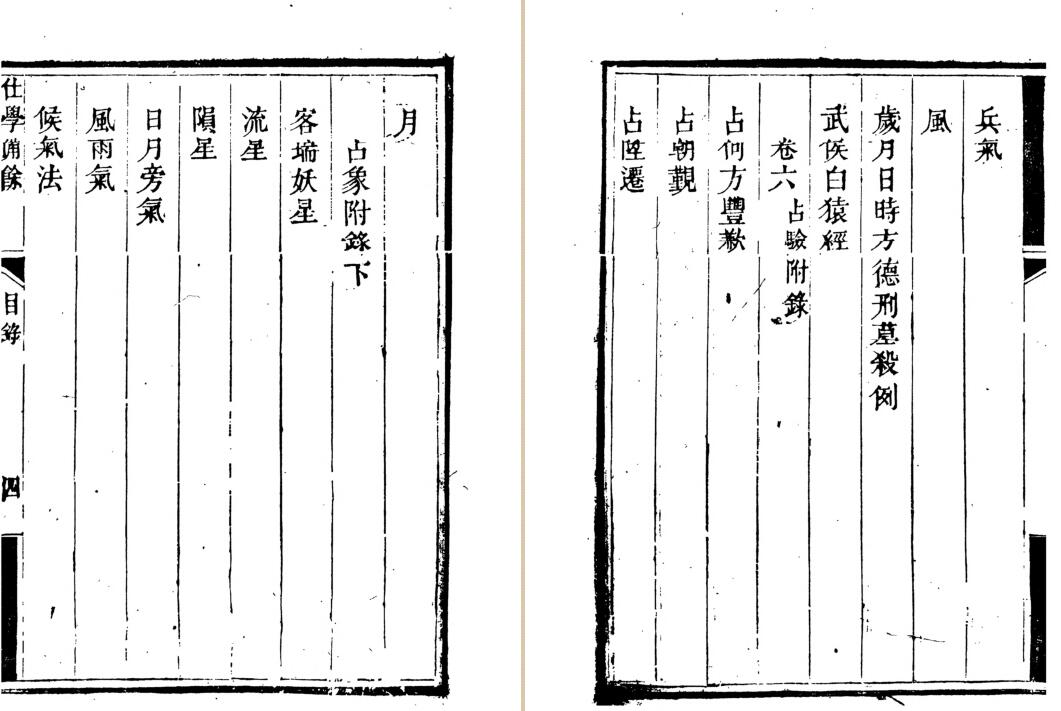 月
占象附錄下
客瑞妖星
流星
隕星
日月旁氣
風雨氣
候氣法
仕學備餘 目錄 四
兵氣
風
歲月日時方德刑墓殺例
武侯白猿經
卷六 占驗附錄
占何方豐歉
占朝覲
占陞遷